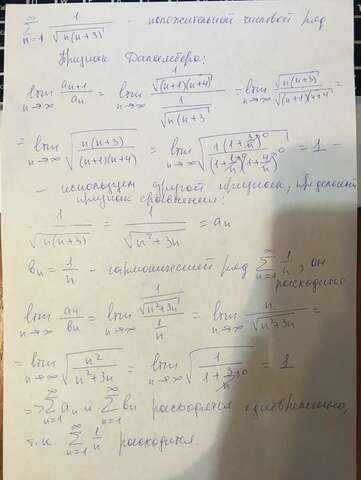 ∞∑n=1 1/√(n(n+3)) - положительный числовой ряд
Признак Даламбера:
lim n→∞ a_{n+1}/a_n = lim n→∞ (1/√((n+1)(n+4)))/(1/√(n(n+3))) = lim n→∞ √(n(n+3))/√((n+1)(n+4)) =
= lim n→∞ √(n(n+3)/((n+1)(n+4))) = lim n→∞ √(1(1+3/n)→0/((1+1/n)→0(1+4/n)→0)) = 1 -
- используем другой признак, предельный
признак сравнения:
1/√(n(n+3)) = 1/√(n²+3n) = a_n
b_n = 1/n - гармонический ряд ∞∑n=1 1/n, он
расходится
lim n→∞ a_n/b_n = lim n→∞ (1/√(n²+3n))/(1/n) = lim n→∞ n/√(n²+3n) =
= lim n→∞ √(n²/(n²+3n)) = lim n→∞ √(1/(1+3/n→0)) = 1
=> ∞∑n=1 a_n и ∞∑n=1 b_n расходятся одновременно,
т.к ∞∑n=1 1/n расходится.